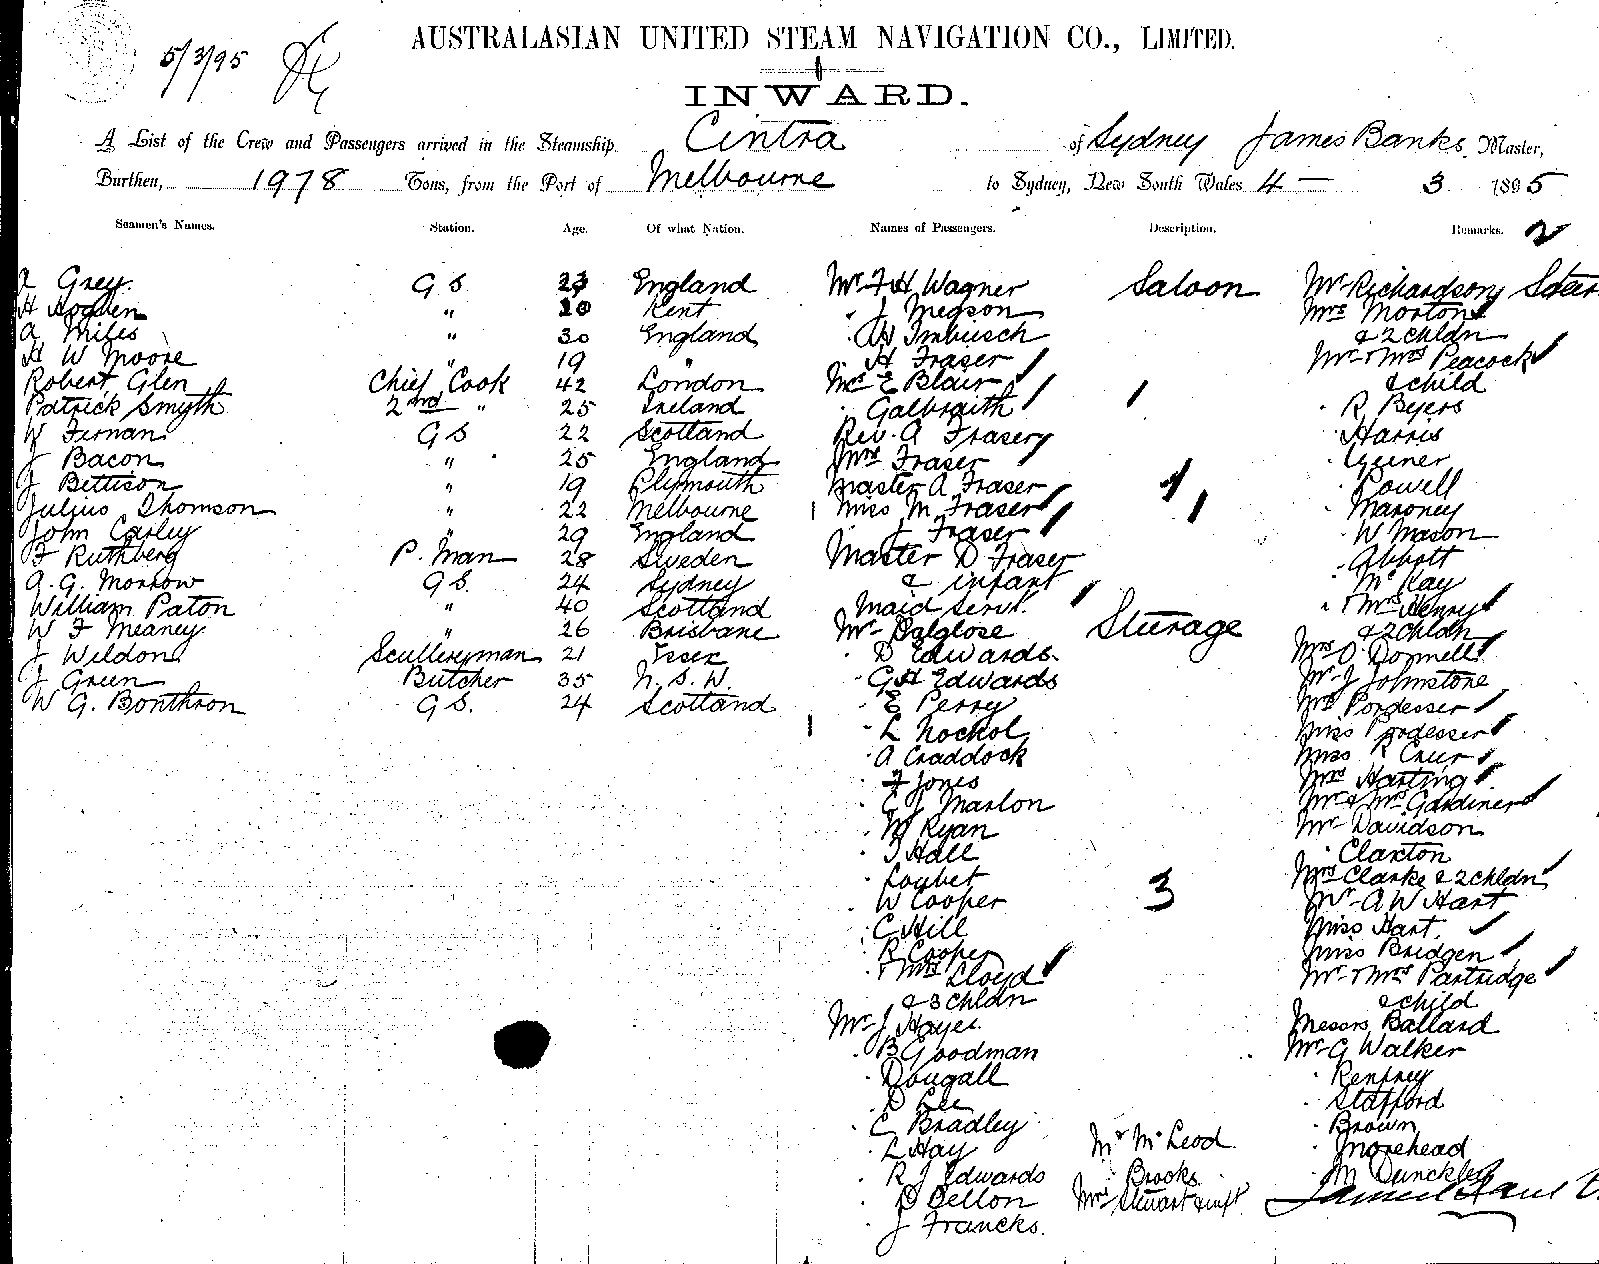 5/3/95
AUSTRALASIAN UNITED STEAM NAVIGATION CO., LIMITED.
INWARD.
A List of the Crew and Passengers arrived in the Steamship Cintra of Sydney James Banks, Master,
Burthen, 1978 Tons, from the Port of Melbourne to Sydney, New South Wales 4 — 3 1895
Seamen's Names. Station. Age. Of what Nation. Names of Passengers. Description. Remarks. 2
A Grey G S England
H Hogben " Kent
A Miles " 30 England
H W Moore " 19 "
Robert Glen Chief Cook 42 London
Patrick Smyth 2nd " 25 Ireland
W Firnan G S 22 Scotland
J Bacon " 25 England
J Bettison " 19 Plymouth
Julius Thomson " 22 Melbourne
John Carley " 29 England
F Ruthberg P. Man 28 Sweden
A. G. Morrow G S. 24 Sydney
William Paton " 40 Scotland
W F Meaney " 26 Brisbane
J Weldon Sculleryman 21 Essex
J Green Butcher 35 N. S. W.
W G. Bonthron G S. 24 Scotland
Mr F H Wagner Saloon
" J Megson
" W Imbusch
" H Fraser
Mrs E Blair
" Galbraith 1
Rev. A Fraser
Mrs Fraser
Master A Fraser 1
Miss M Fraser 1
" J Fraser
Master D Fraser
& infant
Maid Servt.
Mr Dalglose Steerage
" D Edwards
" G H Edwards
" E Perry
" L Nockol
" A Craddock
" F Jones
" C J Marlon
" W Ryan
" T Hall
" Loubet
" W Cooper 3
" C Hill
" R Cooper
" & Mrs Lloyd
& 3 chldn
Mr J Hayes
" B Goodman
" Dougall
" D Lee
" C Bradley
" L Hay
" R J Edwards
" D Dellon
" J Francks.
Mr McLeod
" Brooks
Mrs Stuart & inft
Mr Richardson Steer
Mrs Morton
& 2 chldn
Mr & Mrs Peacock
& child
" R Byers
" Harris
" Geiner
" Powell
" Maroney
" W Mason
" Abbott
" McKay
" & Mrs Henry
& 2 chldn
Mrs O'Donnell
Mr J Johnstone
Mrs Pordesser
Miss Pordesser
Miss R Crur
Mrs Harting
Mr & Mrs Gardiner
Mr Davidson
" Claxton
Mrs Clarke & 2 chldn
Mr A W Hart
Miss Hart.
Miss Bridgen
Mr & Mrs Partridge
& child
Messrs Ballard
Mr G Walker
" Renfrey
" Stafford
" Brown
" Morehead
" M Dunckley